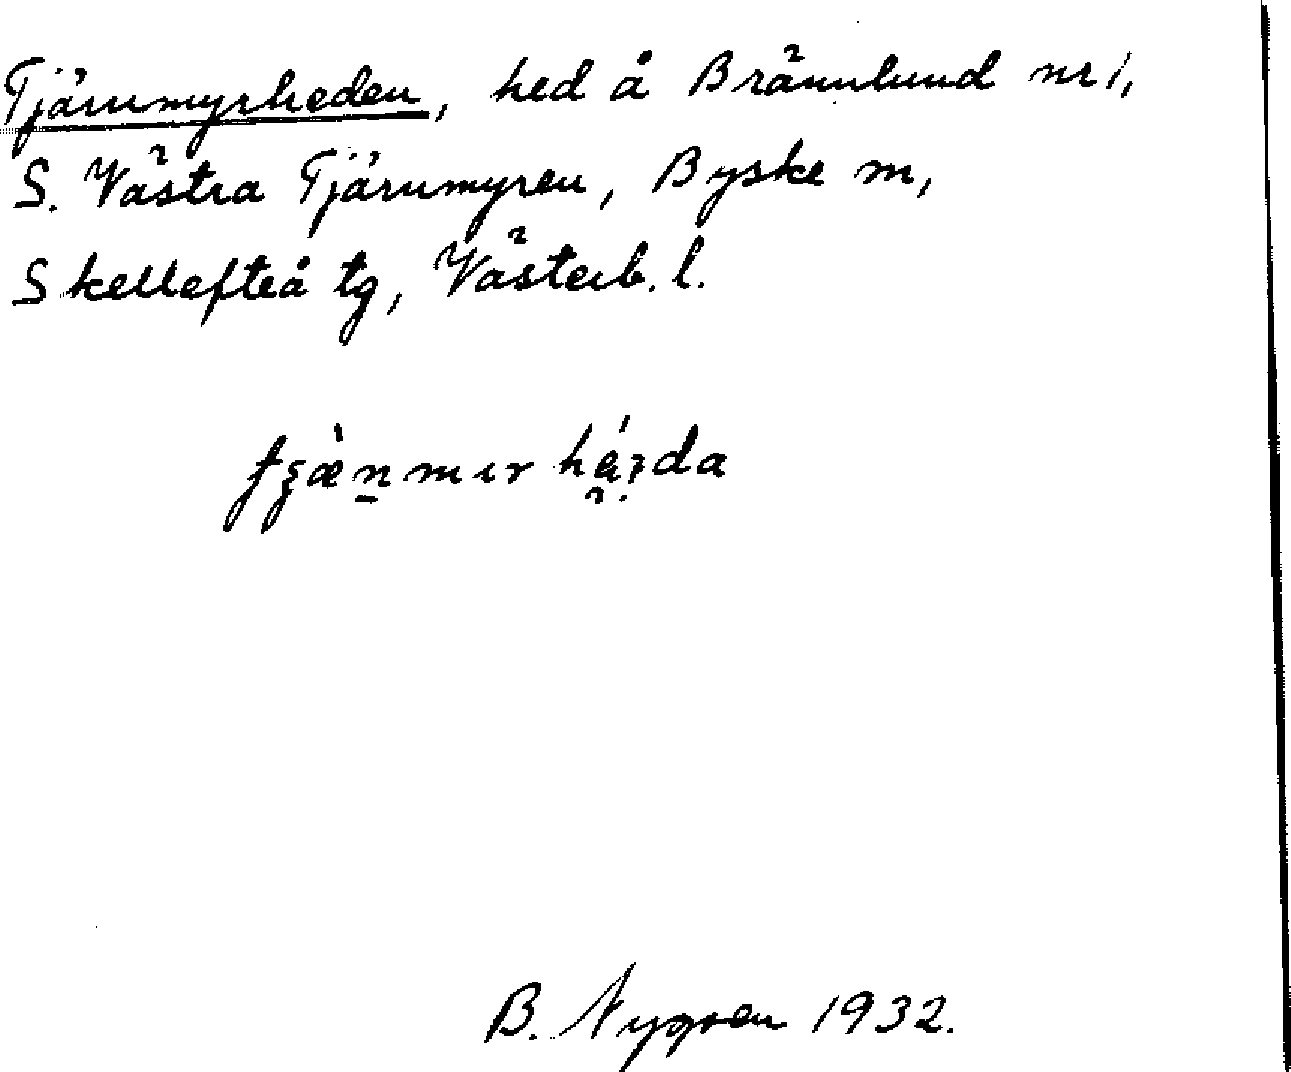 Tjärnmyrheden, hed å Brännlund nr 1,
S. Västra Tjärnmyren, Byske sn,
Skellefteå tg, Västerb. l.
B. Nygren 1932.